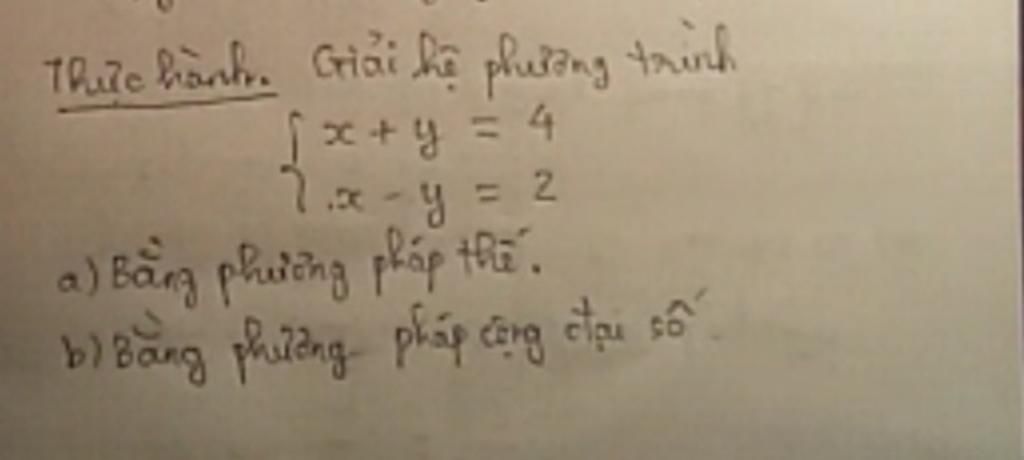 Thực hành. Giải hệ phương trình
x + y = 4
x - y = 2
a) Bằng phương pháp thế.
b) Bằng phương pháp cộng đại số